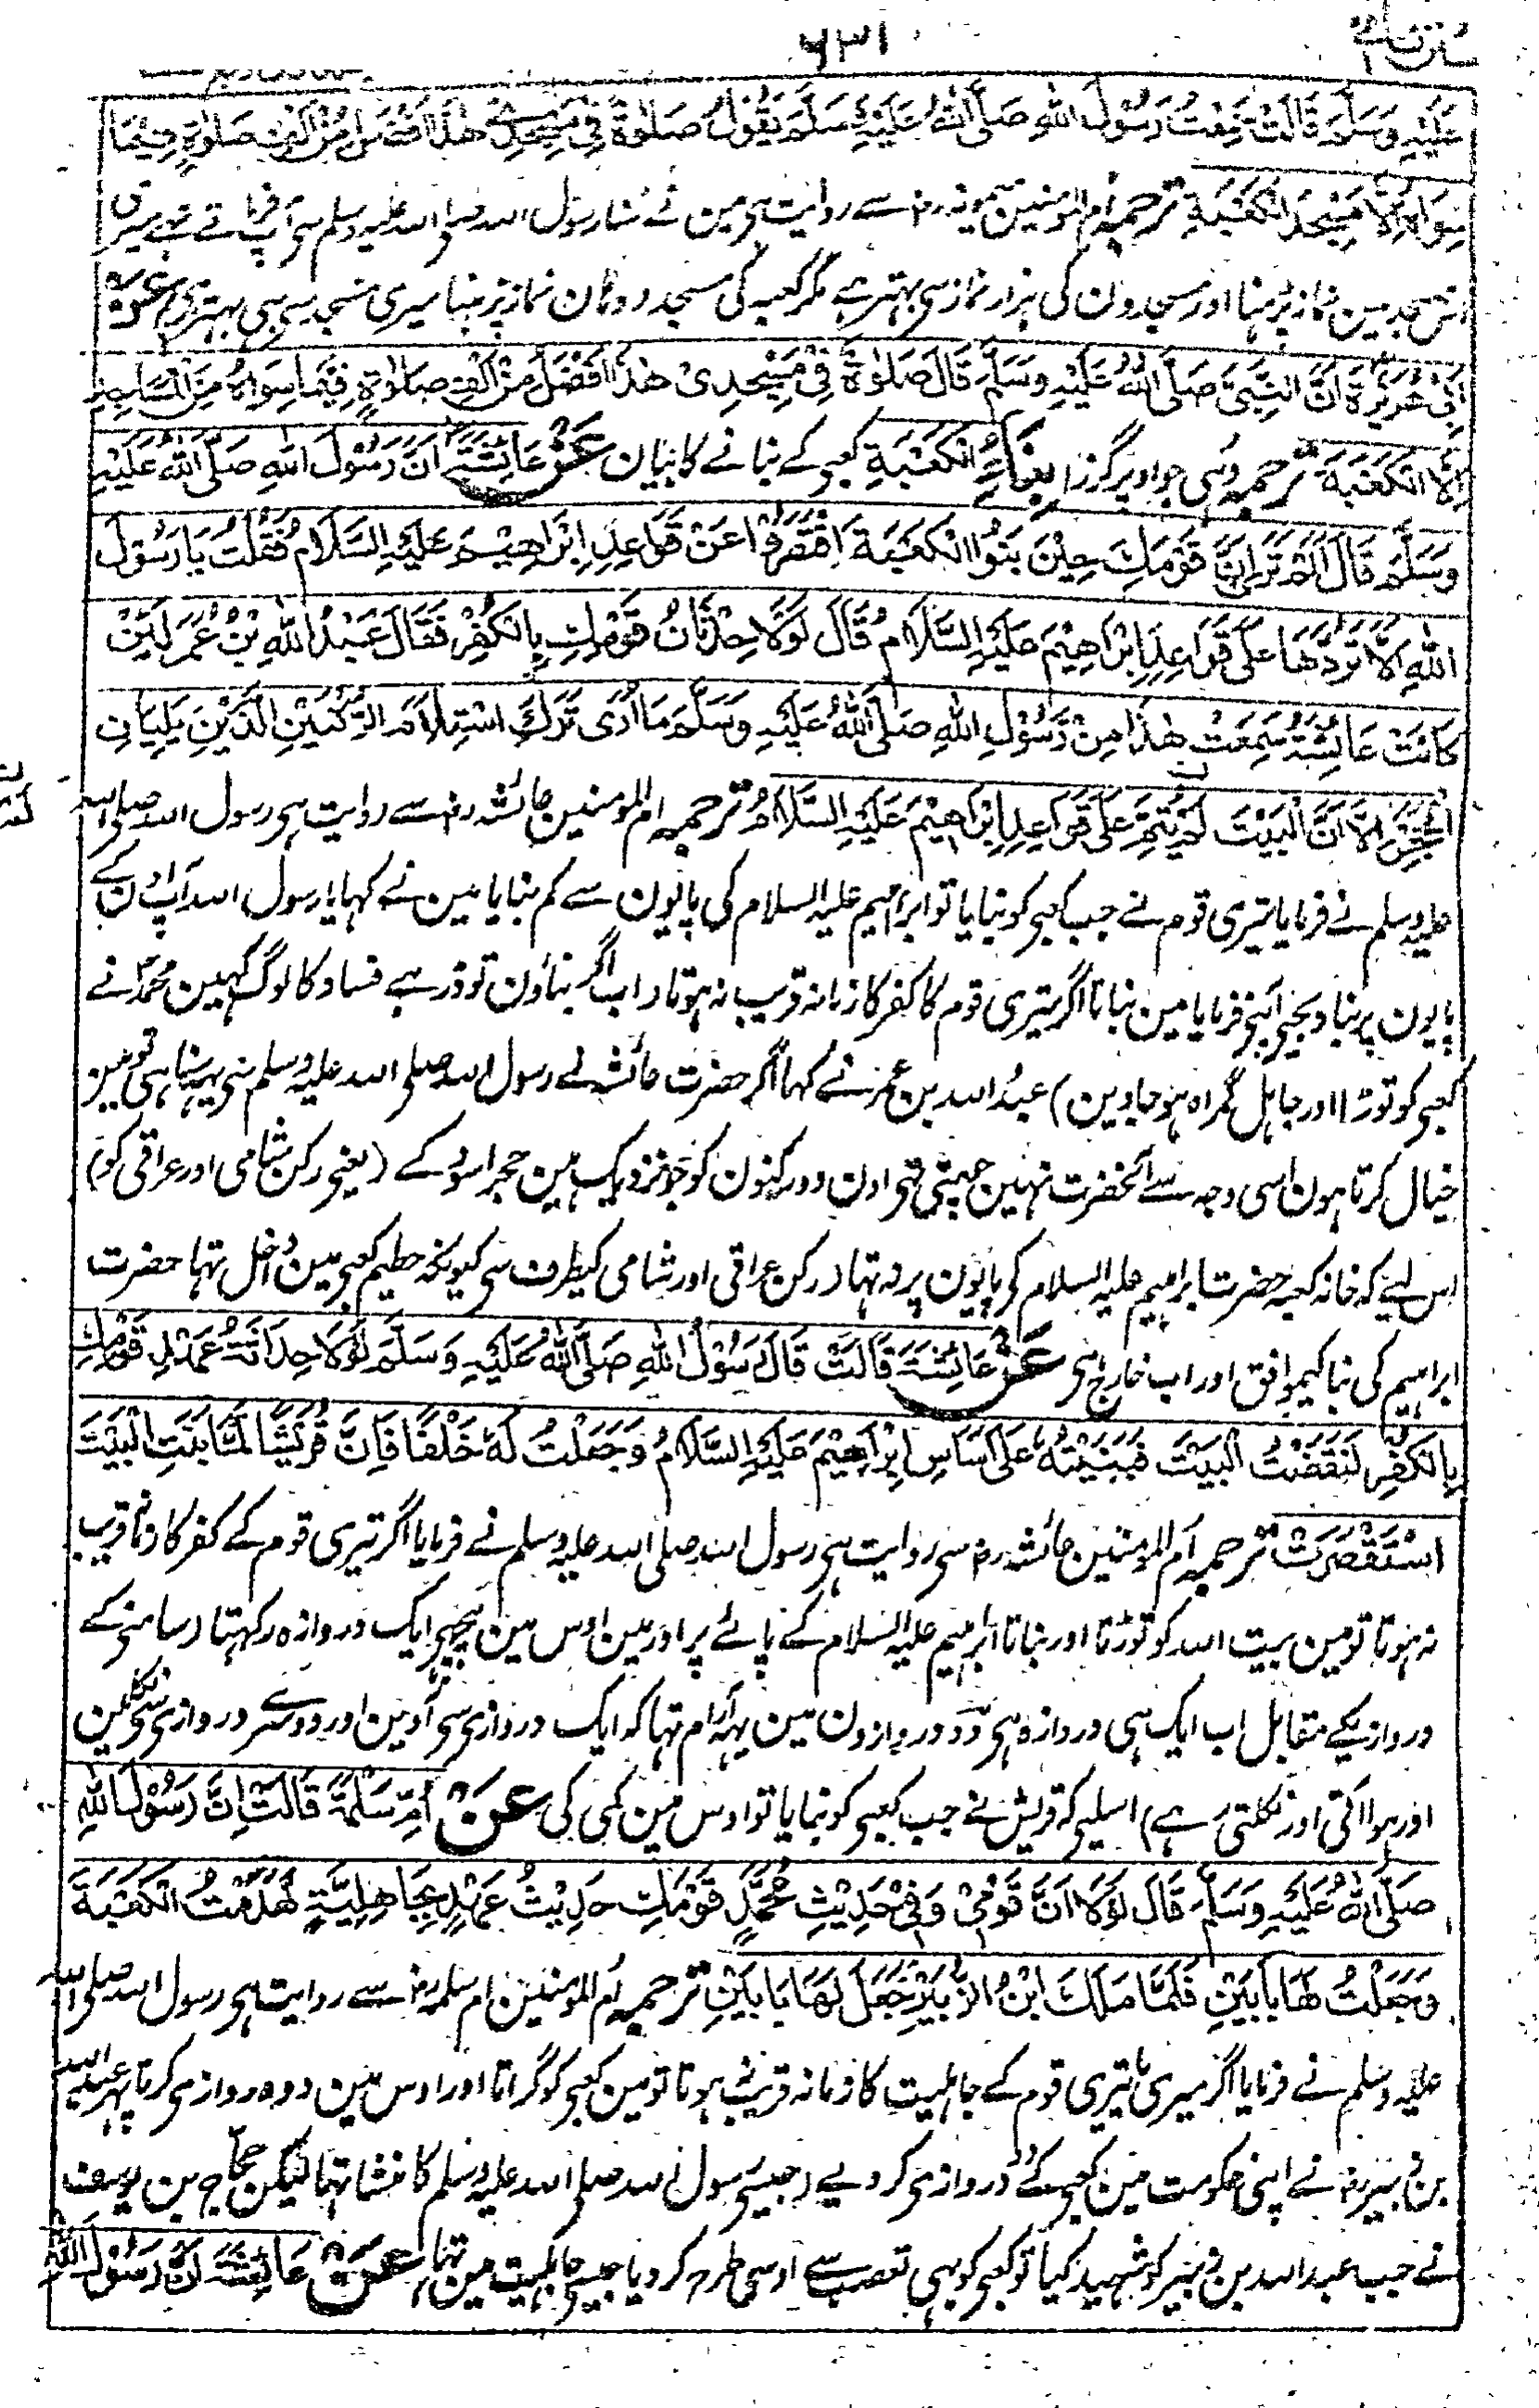 سنن نسائی ۶۳۱
عَلَيْهِ وَسَلَّمَ قَالَتْ سَمِعْتُ رَسُوْلَ اللهِ صَلَّى اللهُ عَلَيْهِ وَسَلَّمَ يَقُوْلُ صَلٰوةٌ فِيْ مَسْجِدِيْ هٰذَا اَفْضَلُ مِنْ اَلْفِ صَلٰوةٍ فِيْمَا
سِوَاهُ اِلَّا مَسْجِدَ الْكَعْبَةِ ترجمہ ام المومنین میمونہ رضہ سے روایت ہی مین نے سنا رسول اللہ صلی اللہ علیہ وسلم سی آپ فرماتے تہے میری
اس مسجد مین نماز پڑہنا اور مسجدون کی ہزار نماز سی بہتر ہے مگر کعبہ کی مسجد وہان نماز پڑہنا میری مسجد سی بہی بہتر ہی عَنْ
اَبِيْ هُرَيْرَةَ اَنَّ النَّبِيَّ صَلَّى اللهُ عَلَيْهِ وَسَلَّمَ قَالَ صَلٰوةٌ فِيْ مَسْجِدِيْ هٰذَا اَفْضَلُ مِنْ اَلْفِ صَلٰوةٍ فِيْمَا سِوَاهُ مِنَ الْمَسَاجِدِ
اِلَّا الْكَعْبَةَ ترجمہ وہی جو اوپر گزرا بِنَاءُ الْكَعْبَةِ کعبے کے بنانے کا بیان عَنْ عَائِشَةَ اَنَّ رَسُوْلَ اللهِ صَلَّى اللهُ عَلَيْهِ
وَسَلَّمَ قَالَ اَلَمْ تَرَ اَنَّ قَوْمَكِ حِيْنَ بَنَوُا الْكَعْبَةَ اقْتَصَرُوْا عَنْ قَوَاعِدِ اِبْرَاهِيْمَ عَلَيْهِ السَّلَامُ فَقُلْتُ يَا رَسُوْلَ
اللهِ اَلَا تَرُدُّهَا عَلٰى قَوَاعِدِ اِبْرَاهِيْمَ عَلَيْهِ السَّلَامُ قَالَ لَوْلَا حِدْثَانُ قَوْمِكِ بِالْكُفْرِ فَقَالَ عَبْدُ اللهِ بْنُ عُمَرَ لَئِنْ
كَانَتْ عَائِشَةُ سَمِعَتْ هٰذَا مِنْ رَسُوْلِ اللهِ صَلَّى اللهُ عَلَيْهِ وَسَلَّمَ مَا اُرٰى تَرَكَ اسْتِلَامَ الرُّكْنَيْنِ الَّذَيْنِ يَلِيَانِ
الْحِجْرَ اِلَّا اَنَّ الْبَيْتَ لَمْ يُتَمَّ عَلٰى قَوَاعِدِ اِبْرَاهِيْمَ عَلَيْهِ السَّلَامُ ترجمہ ام المومنین عائشہ رضہ سے روایت ہی رسول اللہ صلی اللہ
علیہ وسلم نے فرمایا تیری قوم نے جب کعبی کو بنایا تو ابراہیم علیہ السلام کی پایون سے کم بنایا مین نے کہا یا رسول اللہ آپ اون کے
پایون پر بنا دیجیے آپنے فرمایا مین بناتا اگر تیری قوم کا کفر کا زمانہ قریب نہ ہوتا (اب اگر بناؤن تو ڈر ہے فساد کا لوگ کہین محمدؐ نے
کعبی کو توڑا اور جاہل گمراہ ہو جاوین) عبداللہ بن عمر نے کہا اگر حضرت عائشہ نے رسول اللہ صلی اللہ علیہ وسلم سی یہ سنا ہی تو مین
خیال کرتا ہون اسی وجہ سے آنحضرت نہین چہوتی تہی اون دو رکنون کو جو نزدیک ہین حجر اسود کے (یعنی رکن شامی اور عراقی کو)
اس لیے کہ خانہ کعبہ حضرت ابراہیم علیہ السلام کی پایون پر نہ تہا رکن عراقی اور شامی کیطرف سی کیونکہ حطیم کعبی مین داخل تہا حضرت
ابراہیم کی بنا کیموافق اور اب خارج ہی عَنْ عَائِشَةَ قَالَتْ قَالَ رَسُوْلُ اللهِ صَلَّى اللهُ عَلَيْهِ وَسَلَّمَ لَوْلَا حِدَاثَةُ عَهْدِ قَوْمِكِ
بِالْكُفْرِ لَنَقَضْتُ الْبَيْتَ فَبَنَيْتُهُ عَلٰى اَسَاسِ اِبْرَاهِيْمَ عَلَيْهِ السَّلَامُ وَجَعَلْتُ لَهٗ خَلْفًا فَاِنَّ قُرَيْشًا لَمَّا بَنَتِ الْبَيْتَ
اسْتَقْصَرَتْ ترجمہ ام المومنین عائشہ رضہ سی روایت ہی رسول اللہ صلی اللہ علیہ وسلم نے فرمایا اگر تیری قوم کے کفر کا زمانہ قریب
نہ ہوتا تو مین بیت اللہ کو توڑتا اور بناتا ابراہیم علیہ السلام کے پائے پر اور مین اوس مین پیچہی ایک دروازہ رکہتا (سامنی کے
دروازیکے مقابل اب ایک ہی دروازہ ہی دو دروازون مین یہہ آرام تہا کہ ایک دروازی سی آوین اور دوسرے دروازی سی نکلین
اور ہوا آتی اور نکلتی رہے) اسلیے کہ قریش نے جب کعبی کو بنایا تو اوس مین کمی کی عَنْ اُمِّ سَلَمَةَ قَالَتْ اِنَّ رَسُوْلَ اللهِ
صَلَّى اللهُ عَلَيْهِ وَسَلَّمَ قَالَ لَوْلَا اَنَّ قَوْمِيْ وَفِيْ حَدِيْثِ مُحَمَّدٍ قَوْمَكِ حَدِيْثُ عَهْدٍ بِجَاهِلِيَّةٍ لَهَدَمْتُ الْكَعْبَةَ
وَجَعَلْتُ لَهَا بَابَيْنِ فَلَمَّا مَلَكَ ابْنُ الزُّبَيْرِ جَعَلَ لَهَا بَابَيْنِ ترجمہ ام المومنین ام سلمہ رضہ سے روایت ہی رسول اللہ صلی اللہ
علیہ وسلم نے فرمایا اگر میری یا تیری قوم کے جاہلیت کا زمانہ قریب نہ ہوتا تو مین کعبی کو گراتا اور اوس مین دو دروازی کرتا پہر عبداللہ
بن زبیر رضہ نے اپنی حکومت مین کعبی کے دو دروازی کر دیے (جیسی رسول اللہ صلی اللہ علیہ وسلم کا منشا تہا لیکن حجاج بن یوسف
نے جب عبداللہ بن زبیر کو شہید کیا تو کعبی کو بہی تعصب سے اوسی طرح کر دیا جیسی جاہلیت مین تہا عَنْ عَائِشَةَ اَنَّ رَسُوْلَ اللهِ